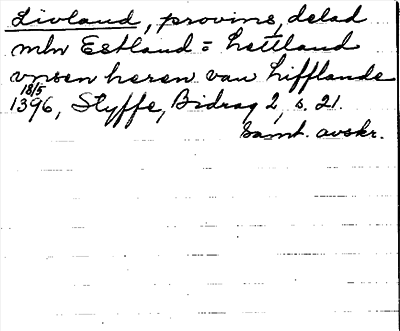 Livland, provins, delad
mln Estland = Lettland
vnsen heren van Lifflande
18/5
1396, Styffe, Bidrag 2, s. 21.
Samt. avskr.